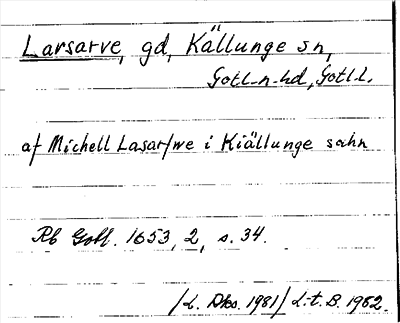 Larsarve, gd, Källunge sn,
Gotl. n. hd, Gotl. l.
af Michell Lasarfwe i Kiällunge sohn
Rb Gotl. 1653, 2, s. 34.
/L. Dks. 1981/ L-t. B. 1982.